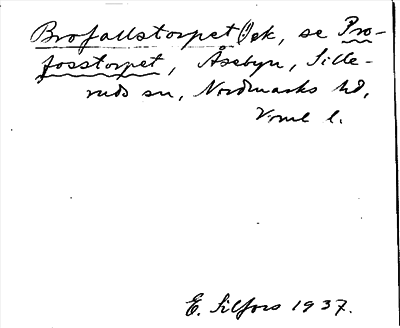 Brofallstorpet Oek, se Pro-
fosstorpet, Åsebyn, Sille-
ruds sn, Nordmarks hd,
Vrml l.
E. Silfors 1937.